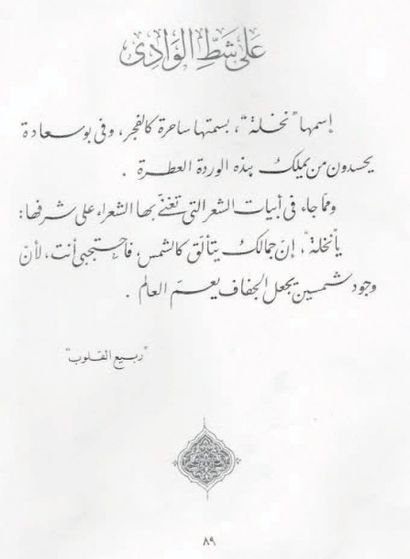 على شط الوادي
إسمها "نخلة"، بسمتها ساحرة كالفجر، وفي بوسعادة
يحسدون من يملك بهذه الوردة العطرة .
ومما جاء في أبيات الشعر التي تغنى بها الشعراء على شرفها:
يا "نخلة"، إن جمالك يتألق كالشمس، فاحتجبي أنت، لأن
وجود شمسين يجعل الجفاف يعم العالم .
"ربيع القلوب"
٨٩